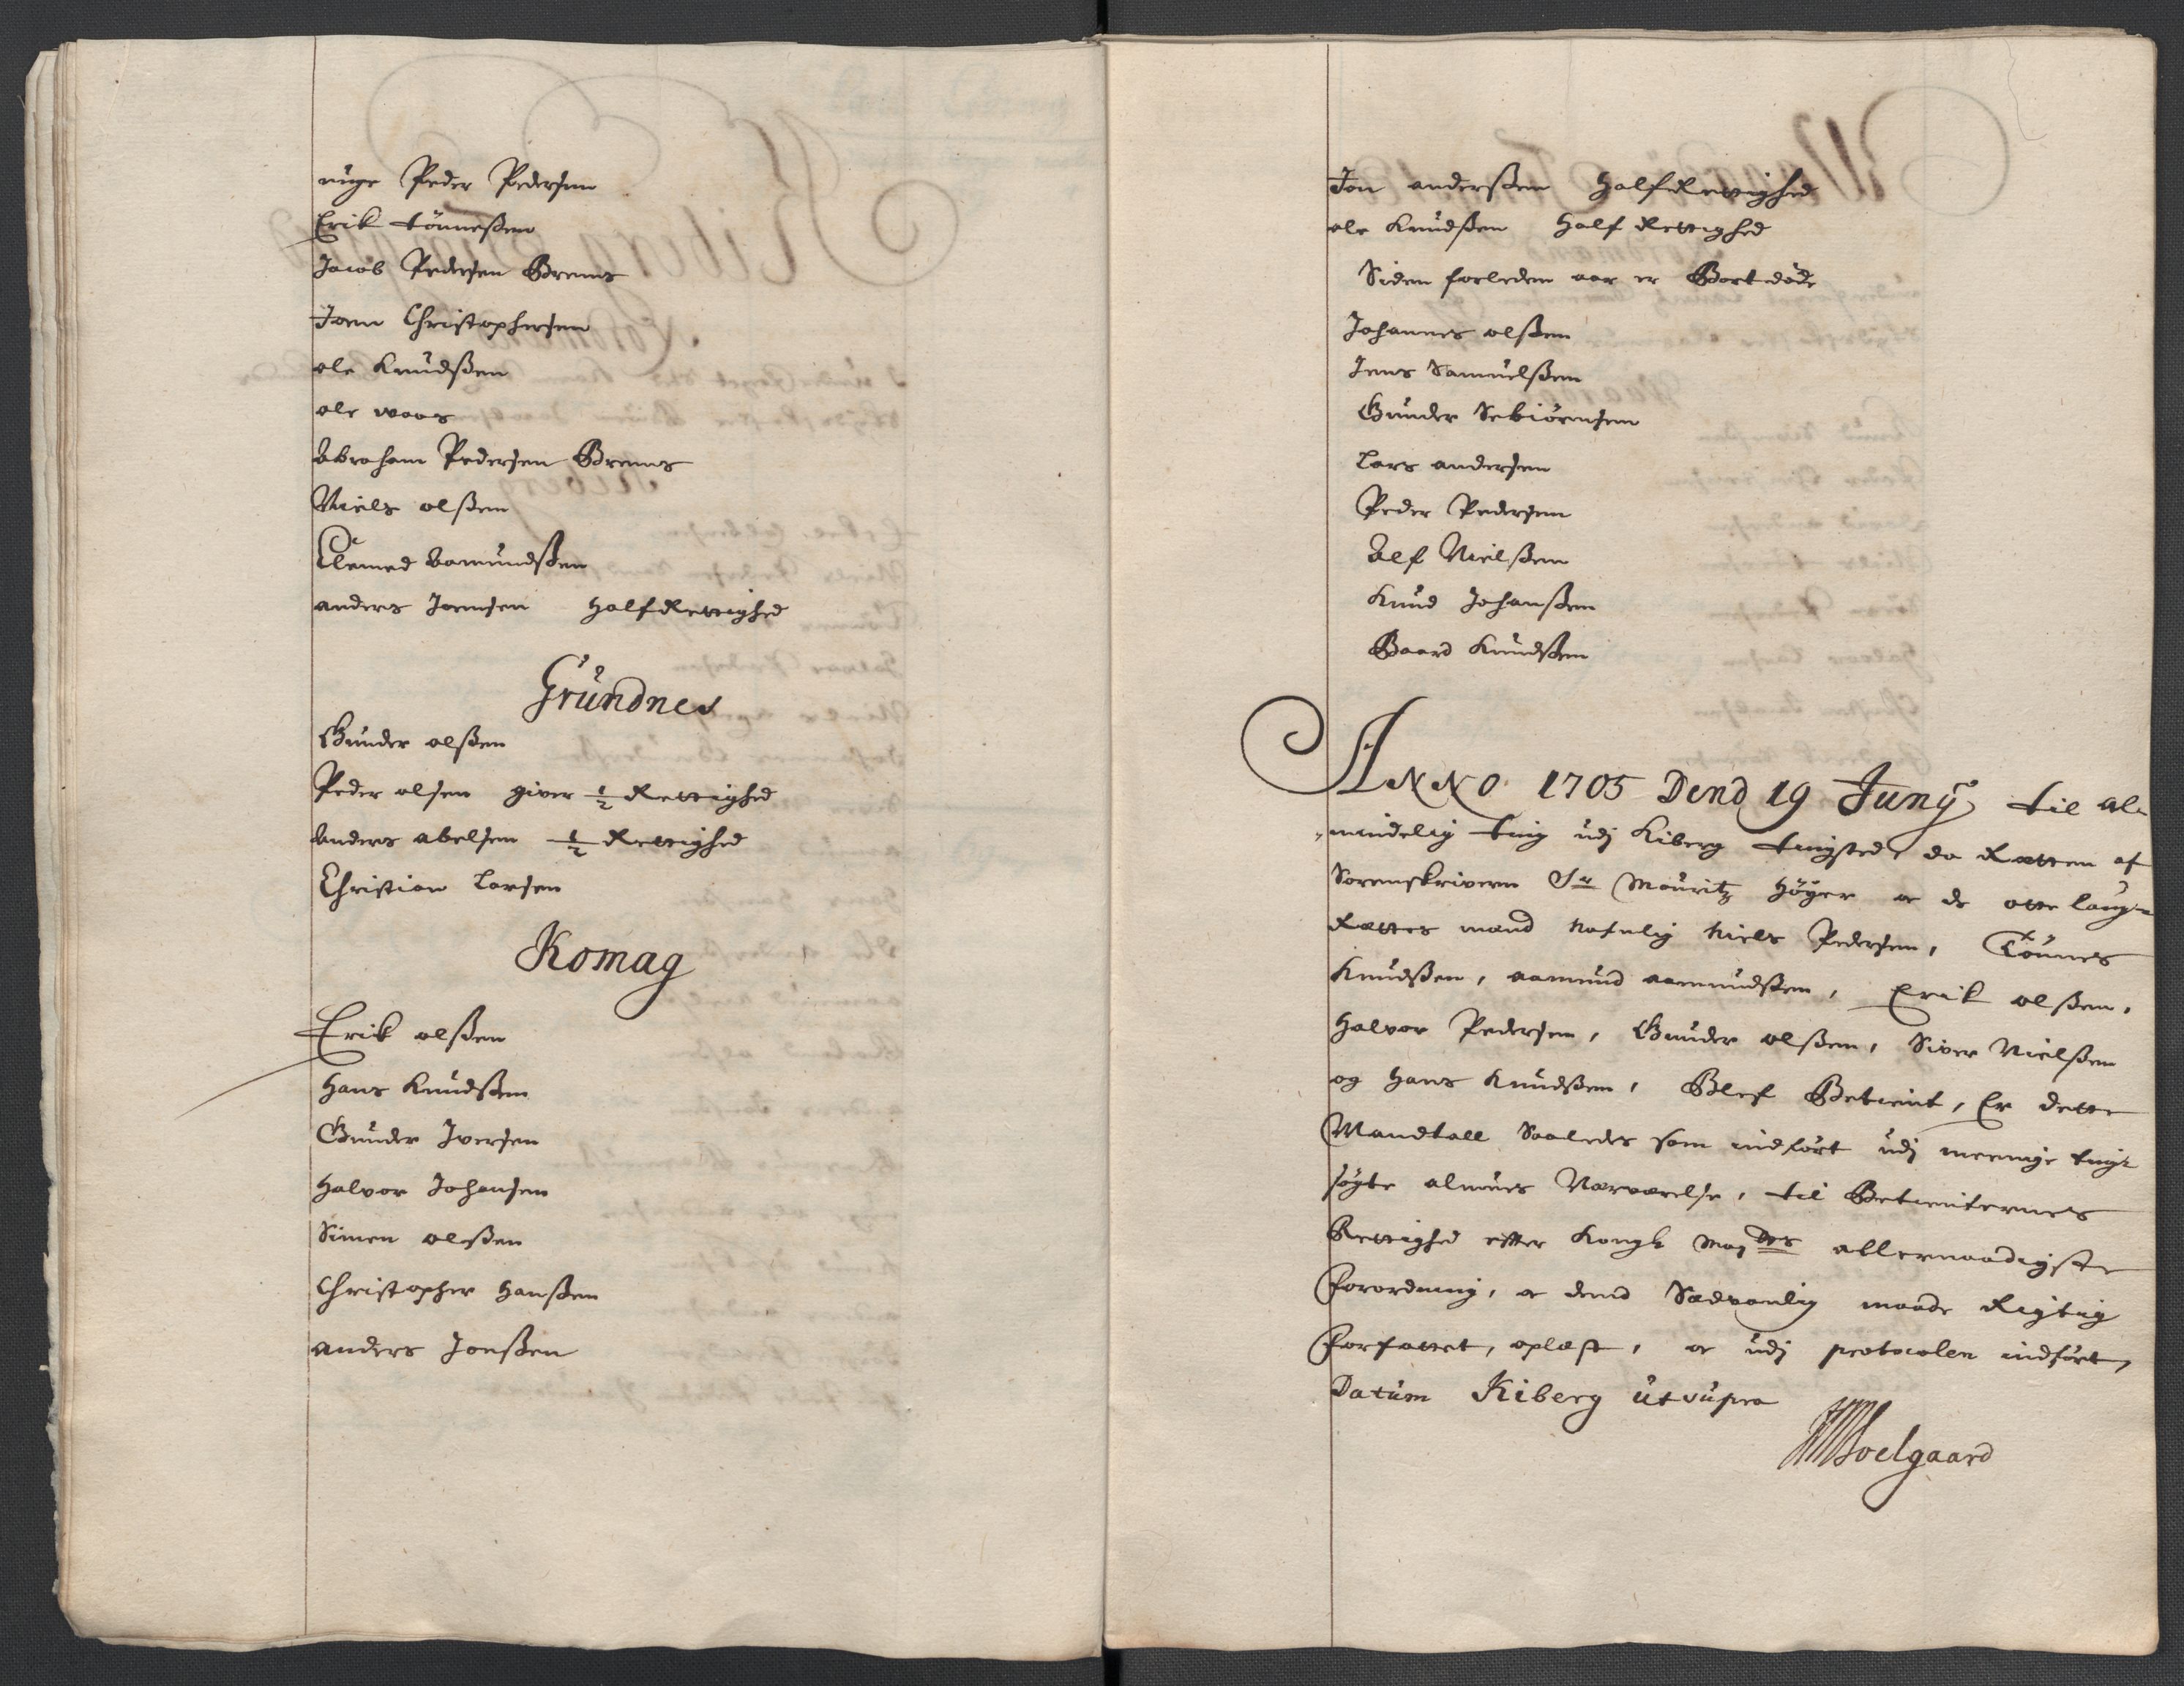 unge Peder Pedersen
Erik tönneßen
Jacob Pedersen Brems
Joen Christophersen
ole Knudßen
ole waas
Abraham Pedersen Brems
Niels olßen
Clemed Aamundßen
anders Joensen half Rettighed
Grundnes
Gunder olßen
Peder olsen giver ½ Rettighed
Anders abelsen ½ Rettighed
Christian Larsen
Komag
Erik olßen
Hans Knudßen
Gunder Iversen
Halvor Johansen
Simen olßen
Christopher Hanßen
anders Jonßen
Jon anderßen half Rettighed
ole Knudßen half Rettighed
Siden forleden aar er Bortdöde
Johannes olßen
Jens Samuelßen
Gunder Sebiörensen
Lars andersen
Peder Pedersen
Alf Nielßen
Knud Johanßen
Baard Knudßen
ANNO 1705 Dend 19 Junÿ til al-
mindelig ting udj Kiberg tingsted, da Retten af
Sorenskrivern Sr Mouritz Höÿer oc de otte laug-
Rettes mænd nafnlig Niels Pedersen, Tönnes
Knudßen, aamund aamundßen, Erik olßen,
Halvor Pedersen, Gunder olßen, Siver Nielßen
og Hans Knudßen, Blef Betient, Er dette
Mandtall Saaledes som indfört udj meenige ting-
sögte almues Nærværelse, til Betienternes
Rettighed efter Kongl Maj ets allernaadigste
Forordning, oc dend Sædvanlig maade Rigtig
Forfattet, oplæst, oc udj protocolen indfört,
Datum Kiberg ut supra
Soelgaard